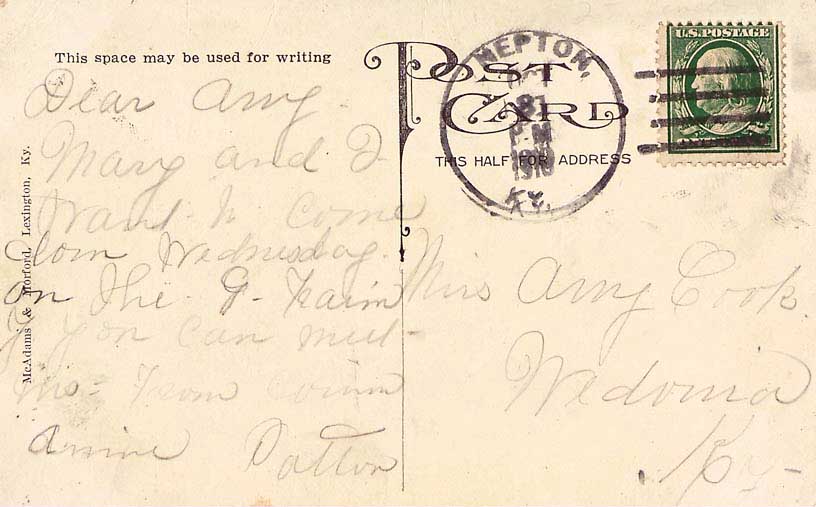 This space may be used for writing
POST CARD
THIS HALF FOR ADDRESS
NEPTON,
21
P-M
1910
KY.
U.S. POSTAGE
McAdams & Morford, Lexington, Ky.
Dear Amy -
Mary and I
want to come
down Wednesday
on the 9 train
if you can meet
us from
Annie Patton
Miss Amy Cook
Wedonia
Ky -